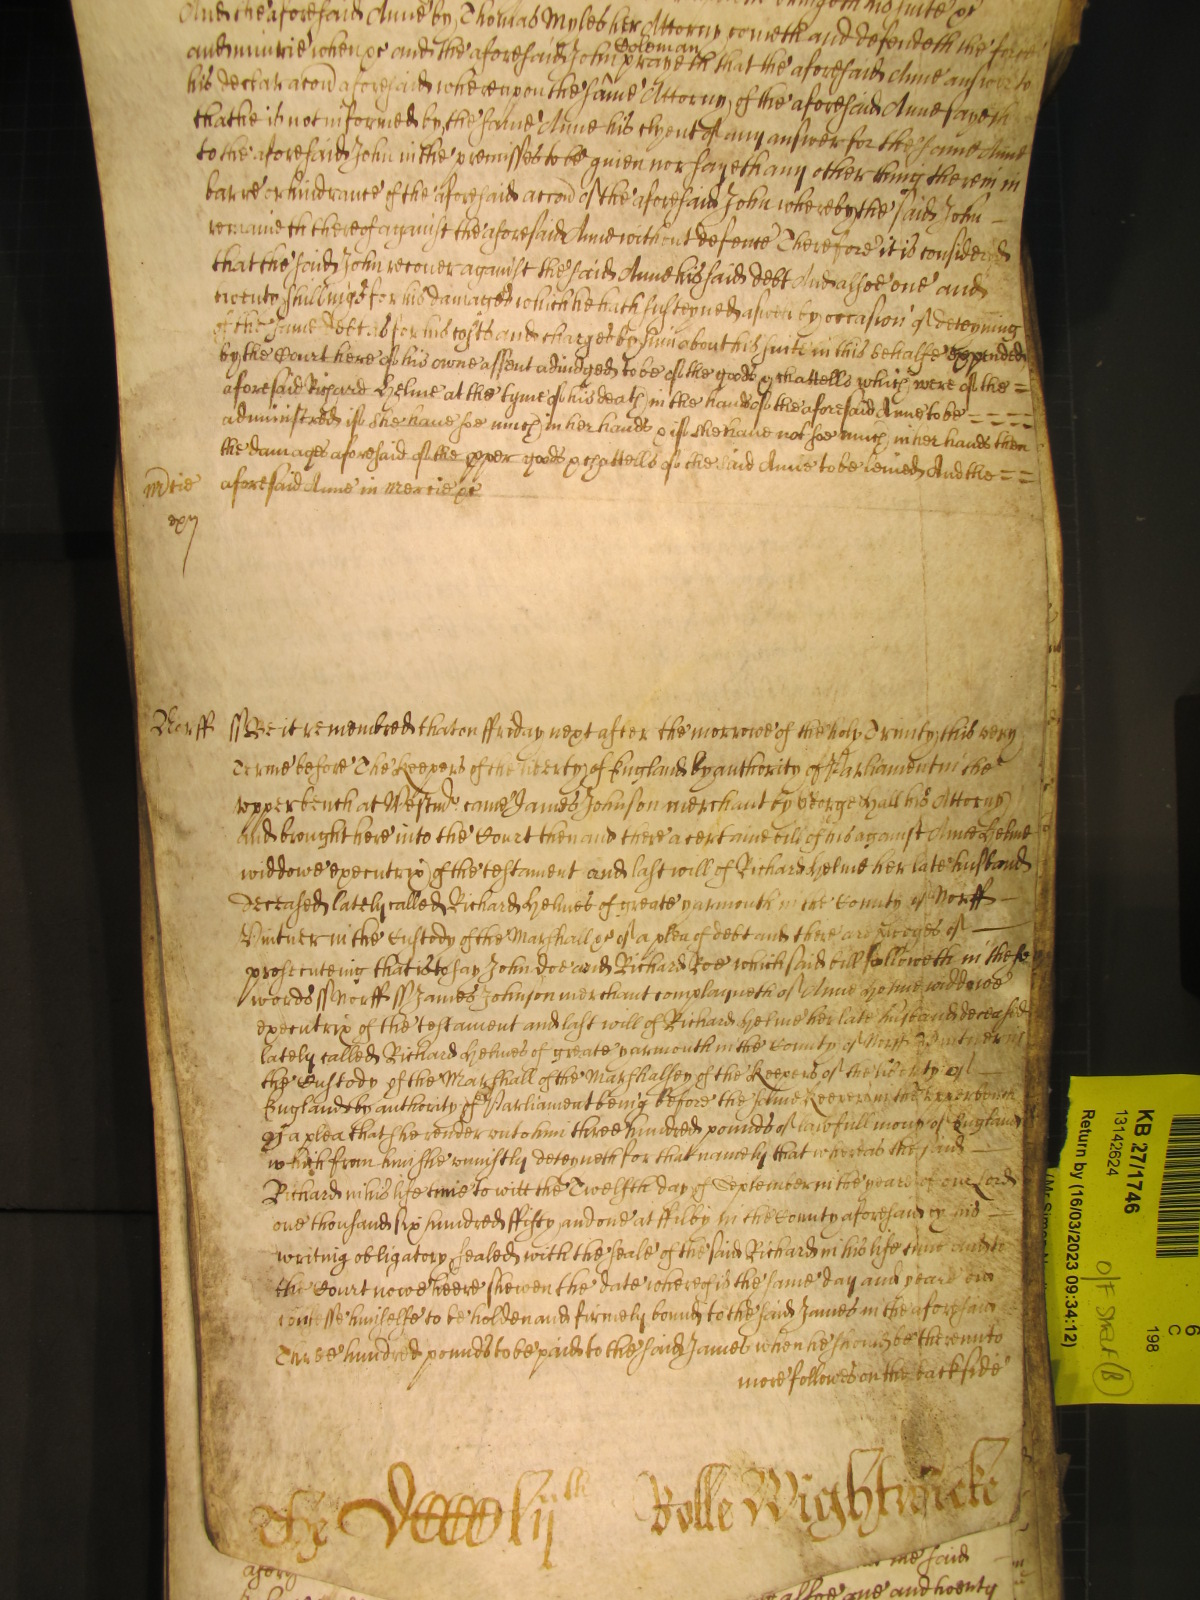 And the aforesaid Anne by Thomas Myles her Attorny cometh and defendeth the force
and iniurie when &c and the aforesaid John Coleman prayeth that the aforesaid Anne answere to
his declaracon aforesaid whereupon the same Attorny of the aforesaid Anne sayeth
that he is not informed by the same Anne his clyent of any answer for the same Anne
to the aforesaid John in the premisses to be giuen nor sayeth any other thing therein in
barre or hindrance of the aforesaid accon of the aforesaid John whereby the said John
remaineth thereof against the aforesaid Anne without defence Therefore it is considered
that the said John recouer against the said Anne his said debt And alsoe one and
twenty shillings for his damages which he hath susteyned aswell by occasion of deteyning
of the same debt as for his costs and charges by him about his suite in this behalfe expended
by the Court here of his owne assent adiudged to be of the goods & chattells which were of the
aforesaid Richard Helme at the tyme of his death in the hands of the aforesaid Anne to be
administred if she haue soe much in her hands & if she haue not soe much in her hands then
the damages aforesaid of the pper goods & chattells of the said Anne to be leuied And the
mcie aforesaid Anne in mercie &c
Norff ss Be it remembred that on ffriday next after the morrowe of the holy Trinity this very
Terme before The Keepers of the liberty of England by authority of Parliament in the
vpper bench at Westmr came James Johnson merchant by George Hall his Attorny
and brought here into the Court then and there a certaine bill of his against Anne Helme
widdowe executrix of the testament and last will of Richard Helme her late husband
deceased lately called Richard Helmes of greate yarmouth in the County of Norff
Vintner in the Custody of the Marshall &c of a plea of debt and there are pledges of
prosecuteing that is to say John Doe and Richard Roe which said bill followeth in these
words ss Norff ss James Johnson merchant complayneth of Anne Helme widdowe
executrix of the testament and last will of Richard Helme her late husband deceased
lately called Richard Helmes of greate yarmouth in the County of Norff Vintner in
the Custody of the Marshall of the Marshalsey of the Keepers of the liberty of
England by authority of Parliament being before the same Keepers in the vpper bench
of a plea that she render vnto him three hundred pounds of lawfull mony of England
which from him she vniustly deteyneth for that namely that whereas the said
Richard in his life time to witt the Twelfth day of September in the yeare of our Lord
one thousand six hundred ffifty and one at ffilby in the County aforesaid by his
writing obligatory sealed with the seale of the said Richard in his life time and to
the Court nowe heere shewen the date whereof is the same day and yeare did
confesse himselfe to be holden and firmely bound to the said James in the aforesaid
Three hundred pounds to be paid to the said James when he should be therevnto
more followes on the backside
Rolle Wightwicke
the said
alsoe one and twenty
KB 27/1746
13142624
Return by (16/03/2023 09:34:12)
6
C
198